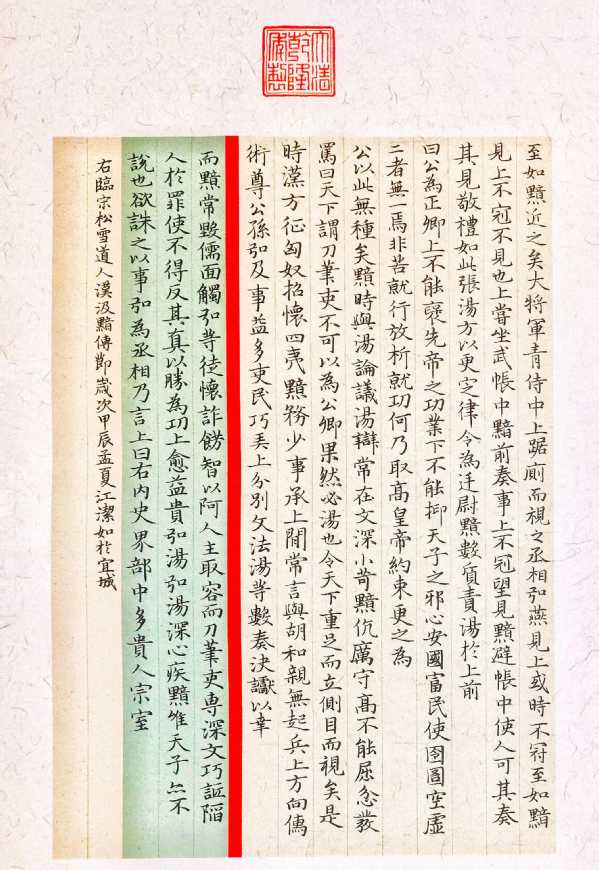 大清乾隆年製
至如黯近之矣大將軍青侍中上踞廁而視之丞相弘燕見上或時不冠至如黯
見上不冠不見也上嘗坐武帳中黯前奏事上不冠望見黯避帳中使人可其奏
其見敬禮如此張湯方以更定律令為廷尉黯數質責湯於上前
曰公為正卿上不能褒先帝之功業下不能抑天子之邪心安國富民使囹圄空虛
二者無一焉非苦就行放析就功何乃取高皇帝約束更之為
公以此無種矣黯時與湯論議湯辯常在文深小苛黯伉厲守高不能屈忿發
罵曰天下謂刀筆吏不可以為公卿果然必湯也令天下重足而立側目而視矣是
時漢方征匈奴招懷四夷黯務少事承上閒常言與胡和親無起兵上方向儒
術尊公孫弘及事益多吏民巧弄上分別文法湯等數奏決讞以幸
而黯常毀儒面觸弘等徒懷詐飾智以阿人主取容而刀筆吏專深文巧詆陷
人於罪使不得反其真以勝為功上愈益貴弘湯弘湯深心疾黯唯天子亦不
說也欲誅之以事弘為丞相乃言上曰右內史界部中多貴人宗室
右臨宗松雪道人漢汲黯傳節歲次甲辰孟夏江潔如於宜城